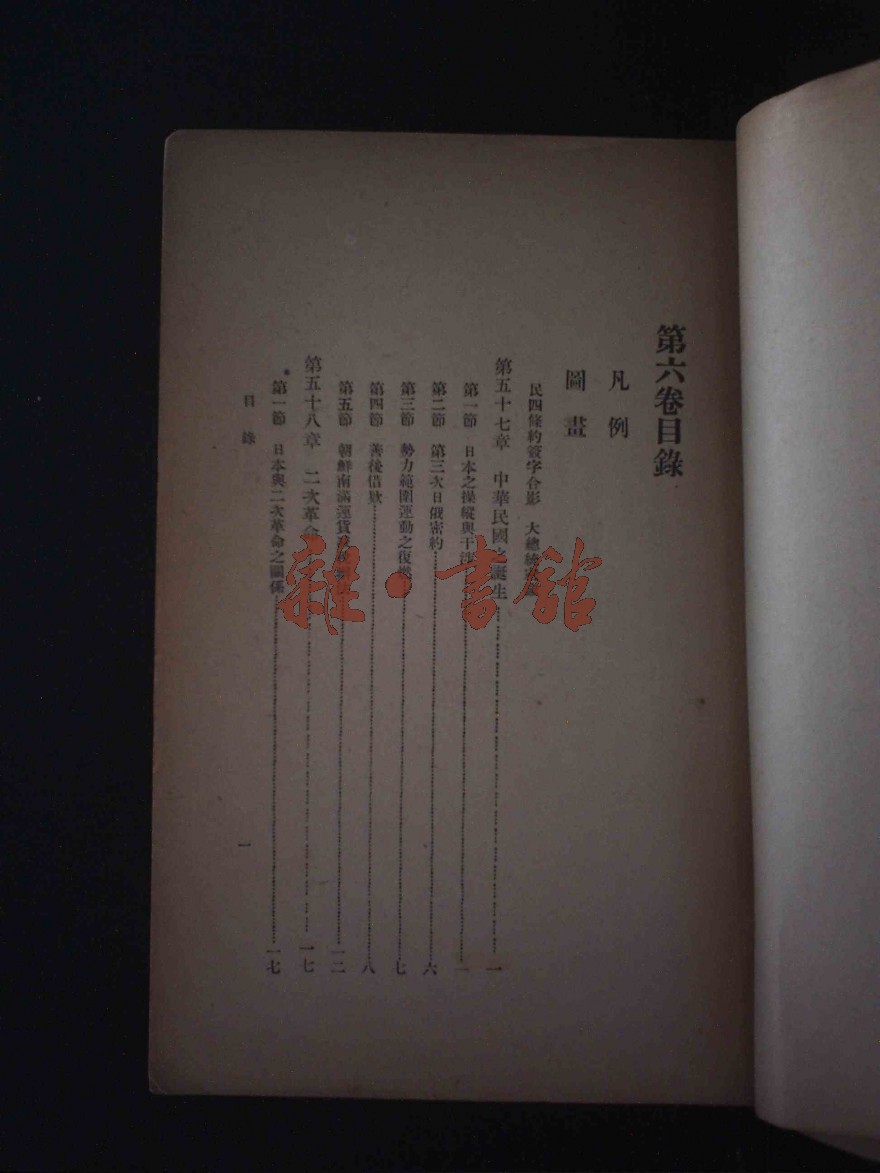 第六卷目錄
凡例
圖畫
民四條約簽字合影　大總統
第五十七章　中華民國之誕生 一
第一節　日本之操縱與干涉 一
第二節　第三次日俄密約 六
第三節　勢力範圍運動之復 七
第四節　善後借款 八
第五節　朝鮮南滿運貨 一二
第五十八章　二次革命 一七
第一節　日本與二次革命之關係 一七
目錄
一
雜·書館